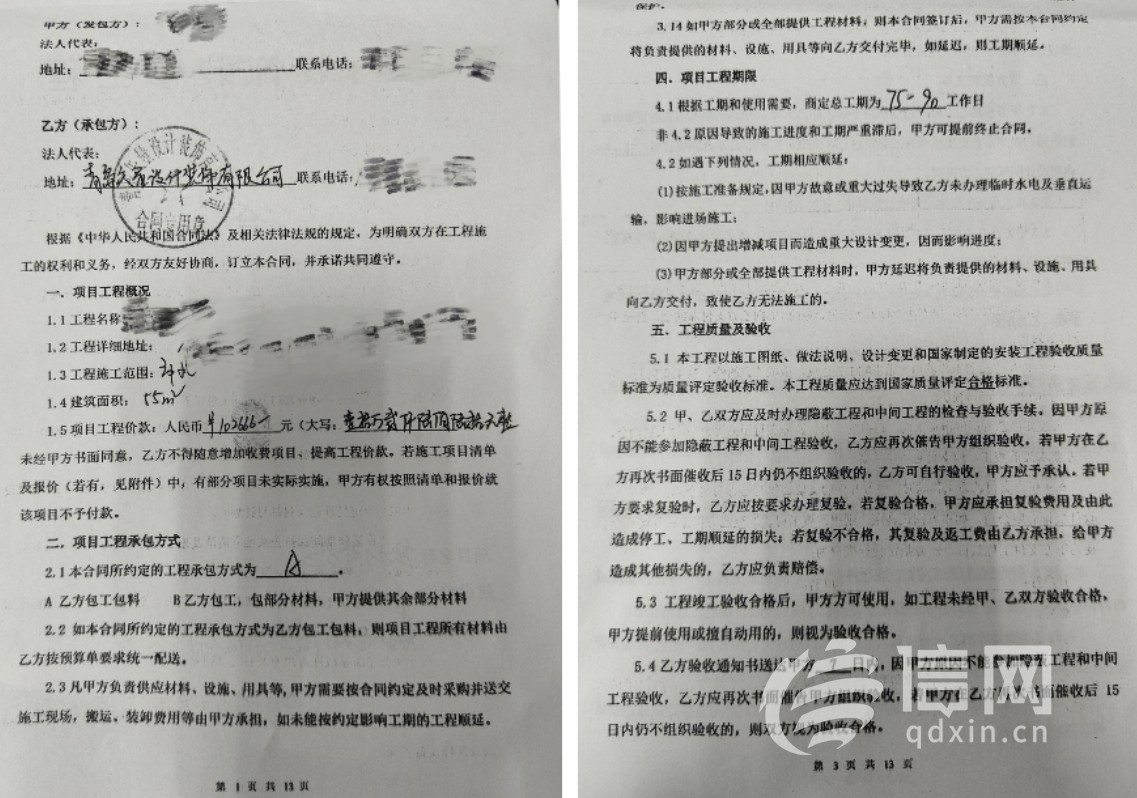 甲方（发包方）：
法人代表：
地址： 联系电话：
乙方（承包方）：
法人代表：
地址： 青岛 设计装饰有限公司 联系电话：
设计装饰
合同专用章
根据《中华人民共和国合同法》及相关法律法规的规定，为明确双方在工程施
工的权利和义务，经双方友好协商，订立本合同，并承诺共同遵守。
一、项目工程概况
1.1 工程名称
1.2 工程详细地址：
1.3 工程施工范围：
1.4 建筑面积： 55m²
1.5 项目工程价款：人民币 102666 元（大写：壹拾万贰仟陆佰陆拾 整
未经甲方书面同意，乙方不得随意增加收费项目、提高工程价款。若施工项目清单
及报价（若有，见附件）中，有部分项目未实际实施，甲方有权按照清单和报价就
该项目不予付款。
二、项目工程承包方式
2.1 本合同所约定的工程承包方式为 A 。
A 乙方包工包料 B 乙方包工，包部分材料，甲方提供其余部分材料
2.2 如本合同所约定的工程承包方式为乙方包工包料，则项目工程所有材料由
乙方按预算单要求统一配送。
2.3 凡甲方负责供应材料、设施、用具等，甲方需要按合同约定及时采购并送交
施工现场，搬运、装卸费用等由甲方承担，如未能按约定影响工期的工程顺延。
第 1 页 共 13 页
保护。
3.14 如甲方部分或全部提供工程材料，则本合同签订后，甲方需按本合同约定
将负责提供的材料、设施、用具等向乙方交付完毕，如延迟，则工期顺延。
四、项目工程期限
4.1 根据工期和使用需要，商定总工期为 75-90 工作日
非 4.2 原因导致的施工进度和工期严重滞后，甲方可提前终止合同。
4.2 如遇下列情况，工期相应顺延：
(1)按施工准备规定，因甲方故意或重大过失导致乙方未办理临时水电及垂直运
输，影响进场施工；
(2)因甲方提出增减项目而造成重大设计变更，因而影响进度；
(3)甲方部分或全部提供工程材料时，甲方延迟将负责提供的材料、设施、用具
向乙方交付，致使乙方无法施工的。
五、工程质量及验收
5.1 本工程以施工图纸、做法说明、设计变更和国家制定的安装工程验收质量
标准为质量评定验收标准。本工程质量应达到国家质量评定合格标准。
5.2 甲、乙双方应及时办理隐蔽工程和中间工程的检查与验收手续。因甲方原
因不能参加隐蔽工程和中间工程验收，乙方应再次催告甲方组织验收，若甲方在乙
方再次书面催收后 15 日内仍不组织验收的，乙方可自行验收，甲方应予承认。若甲
方要求复验时，乙方应按要求办理复验。若复验合格，甲方应承担复验费用及由此
造成停工、工期顺延的损失；若复验不合格，其复验及返工费由乙方承担，给甲方
造成其他损失的，乙方应负责赔偿。
5.3 工程竣工验收合格后，甲方方可使用，如工程未经甲、乙双方验收合格，
甲方提前使用或擅自动用的，则视为验收合格。
5.4 乙方验收通知书送达甲方 7 日内，因甲方原因不能参加隐蔽工程和中间
工程验收，乙方应再次书面催告甲方组织验收，若甲方在乙方再次书面催收后 15
日内仍不组织验收的，则双方视为验收合格。
第 3 页 共 13 页
信网
qdxin.cn